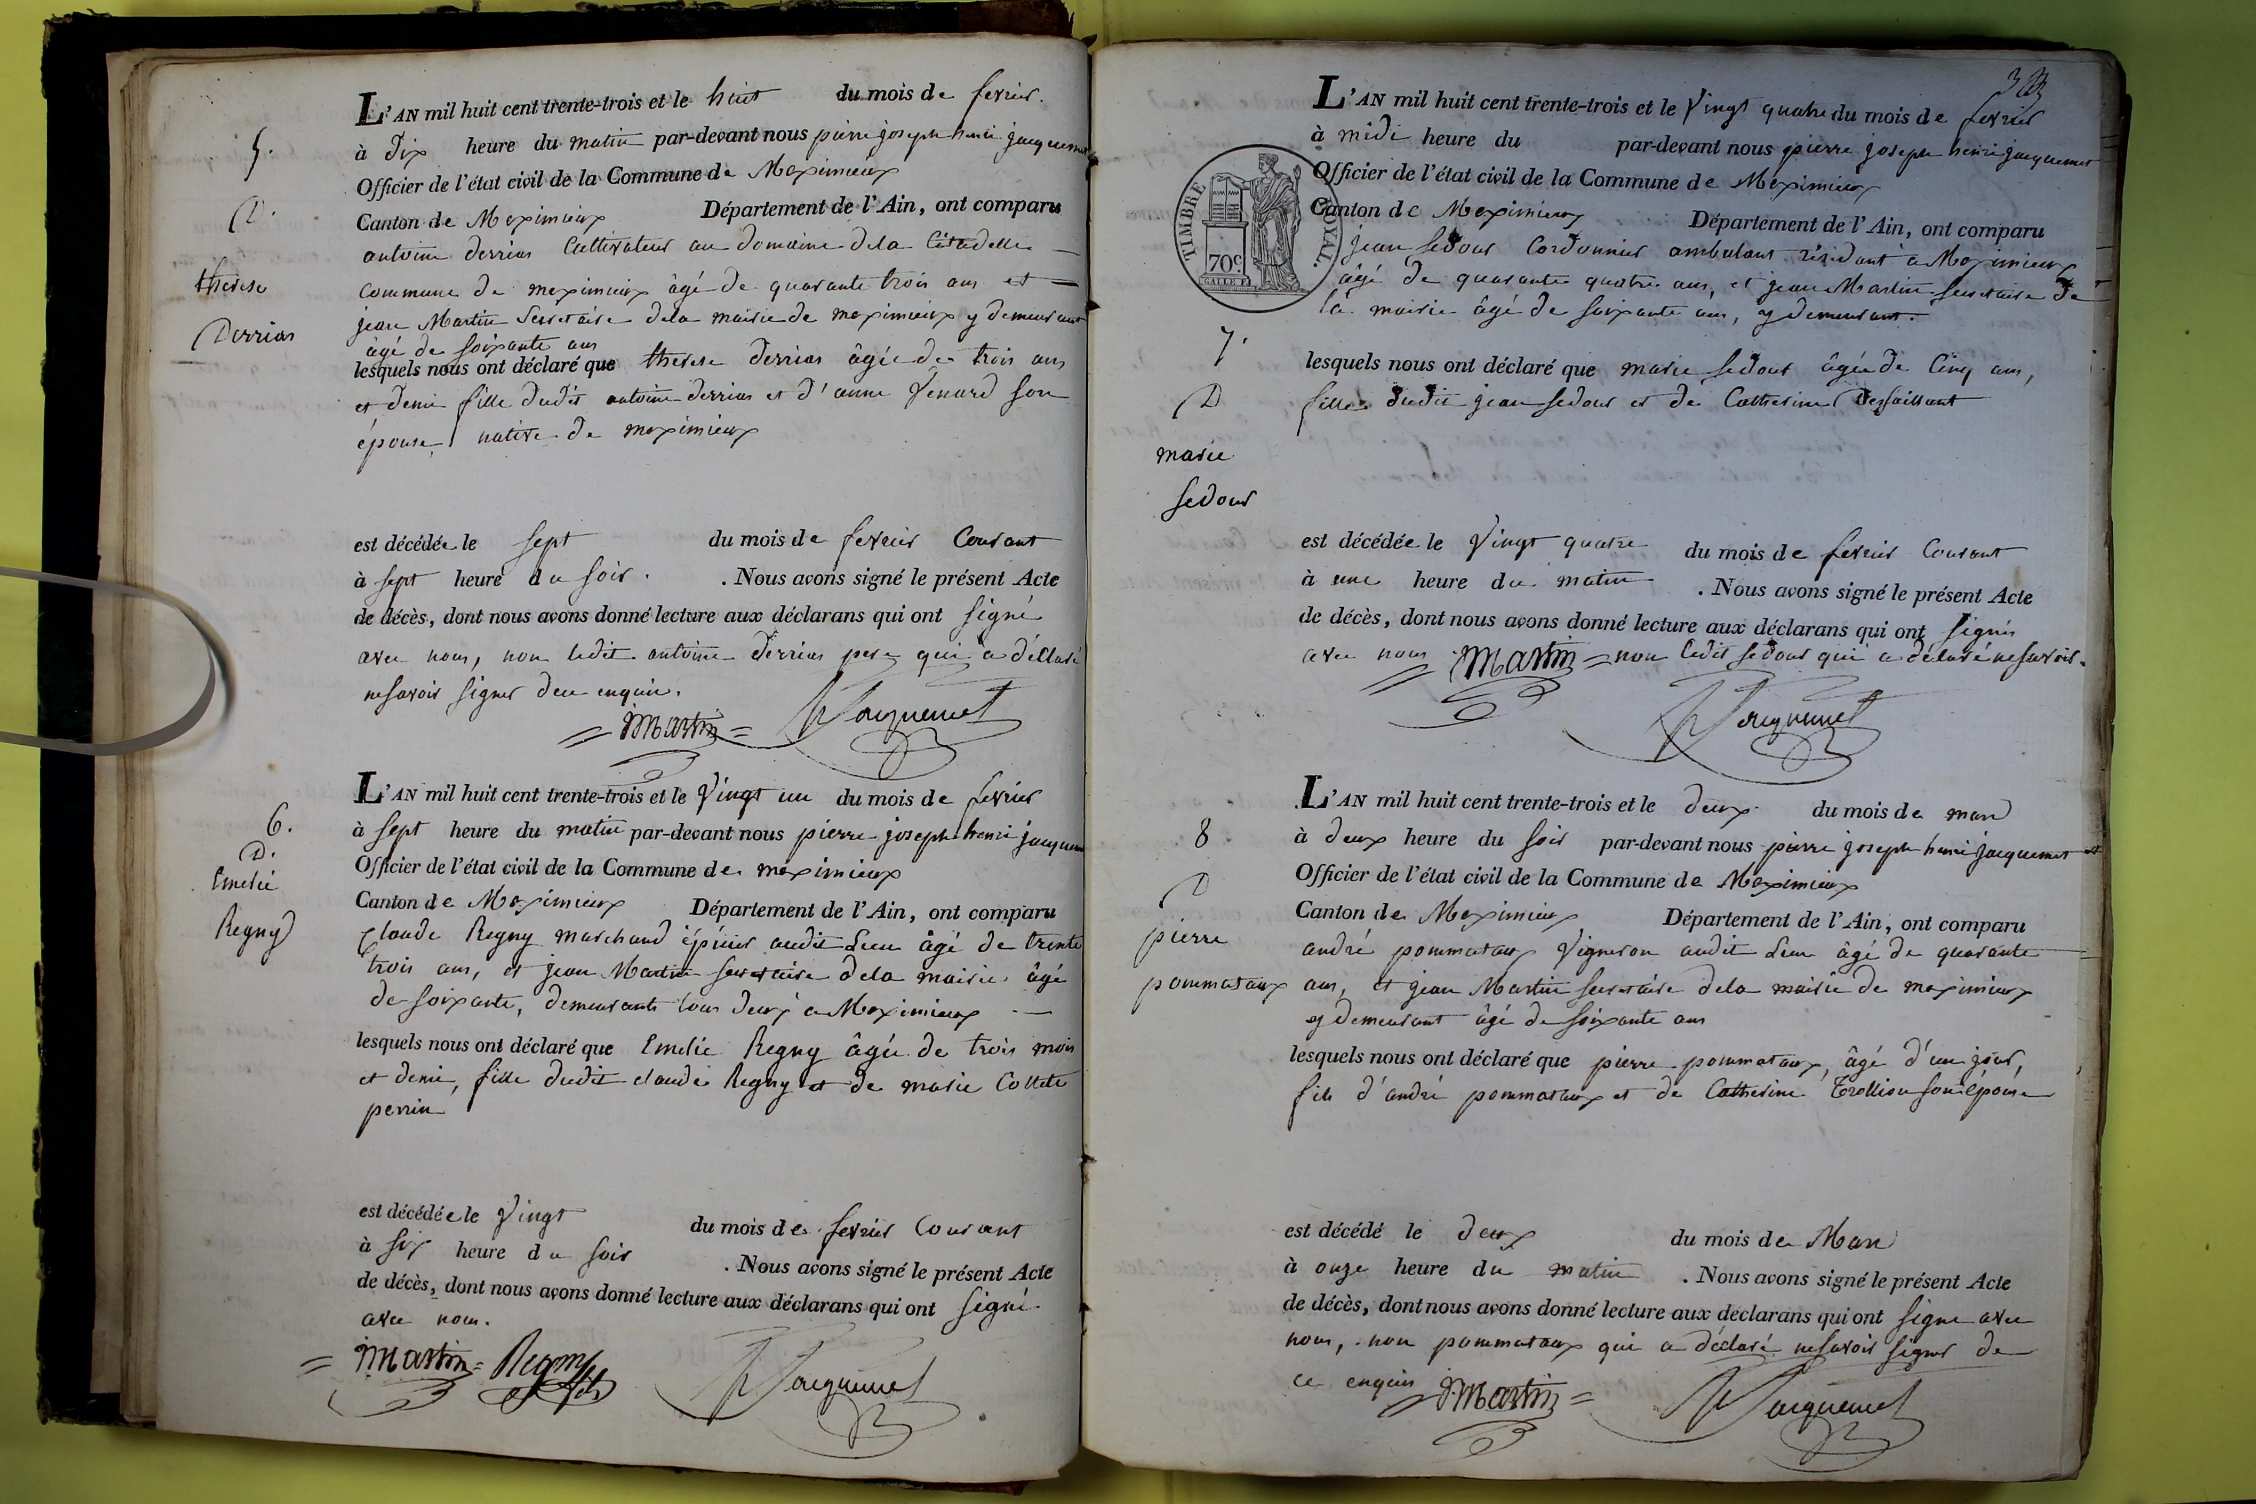 5.
D.
therese
Derrias
L'AN mil huit cent trente-trois et le huit du mois de fevrier.
à dix heure du matin par-devant nous pierre joseph henri jacquemet
Officier de l'état civil de la Commune de Meximieux
Canton de Meximieux Département de l'Ain, ont comparu
antoine derrias Cultivateur au domaine dela Citadelle
commune de meximieux âgé de quarante trois ans et
jean Martin Secretaire dela mairie de meximieux y demeurant
âgé de soixante ans
lesquels nous ont déclaré que therese derrias âgée de trois ans
et demi fille dudit antoine derrias et d'anne Venard son
épouse, native de meximieux
est décédée le sept du mois de fevrier Courant
à sept heure du soir. . Nous avons signé le présent Acte
de décès, dont nous avons donné lecture aux déclarans qui ont signé
avec nous, non ledit antoine derrias pere qui a déclaré
nesavoir signer dece enquis.
Martin Jacquemet
6.
D.
Emelie
Regny
L'AN mil huit cent trente-trois et le Vingt un du mois de fevrier
à sept heure du matin par-devant nous pierre joseph henri jacquemet
Officier de l'état civil de la Commune de meximieux
Canton de Meximieux Département de l'Ain, ont comparu
Claude Regny marchand épicier audit Lieu âgé de trente
trois ans, et jean Martin secretaire dela mairie âgé
de soixante, demeurants tous deux a Meximieux
lesquels nous ont déclaré que Emelie Regny âgée de trois mois
et demi, fille dudit claude Regny et de marie Collete
perrin
est décédée le Vingt du mois de fevrier Courant
à six heure du soir . Nous avons signé le présent Acte
de décès, dont nous avons donné lecture aux déclarans qui ont signé
avec nous.
Martin Regny fils Jacquemet
TIMBRE ROYAL.
70c
7.
D
marie
sedour
L'AN mil huit cent trente-trois et le Vingt quatre du mois de fevrier
à midi heure du par-devant nous pierre joseph henri jacquemet
Officier de l'état civil de la Commune de Meximieux
Canton de Meximieux Département de l'Ain, ont comparu
jean sedour Cordonnier ambulant résidant à Meximieux
âgé de quarante quatre ans, et jean Martin secretaire de
la mairie âgé de soixante ans, y demeurant.
lesquels nous ont déclaré que marie sedour âgée de Cinq ans,
fille dudit jean sedour et de Catherine Dessaillant
est décédée le Vingt quatre du mois de fevrier Courant
à une heure du matin . Nous avons signé le présent Acte
de décès, dont nous avons donné lecture aux déclarans qui ont signés
avec nous Martin non ledit sedour qui a déclaré nesavoir.
Jacquemet
8
D
pierre
pommataux
L'AN mil huit cent trente-trois et le deux du mois de mars
à deux heure du soir par-devant nous pierre joseph henri jacquemet
Officier de l'état civil de la Commune de Meximieux
Canton de Meximieux Département de l'Ain, ont comparu
andré pommataux Vigneron audit Lieu âgé de quarante
ans, et jean Martin secretaire dela mairie de meximieux
y demeurant âgé de soixante ans
lesquels nous ont déclaré que pierre pommataux, âgé d'un jour,
fils d'andré pommataux et de Catherine Trollion son épouse
est décédé le deux du mois de Mars
à onze heure du matin . Nous avons signé le présent Acte
de décès, dont nous avons donné lecture aux declarans qui ont signe avec
nous, non pommataux qui a déclaré nesavoir signer de
ce enquis Martin Jacquemet